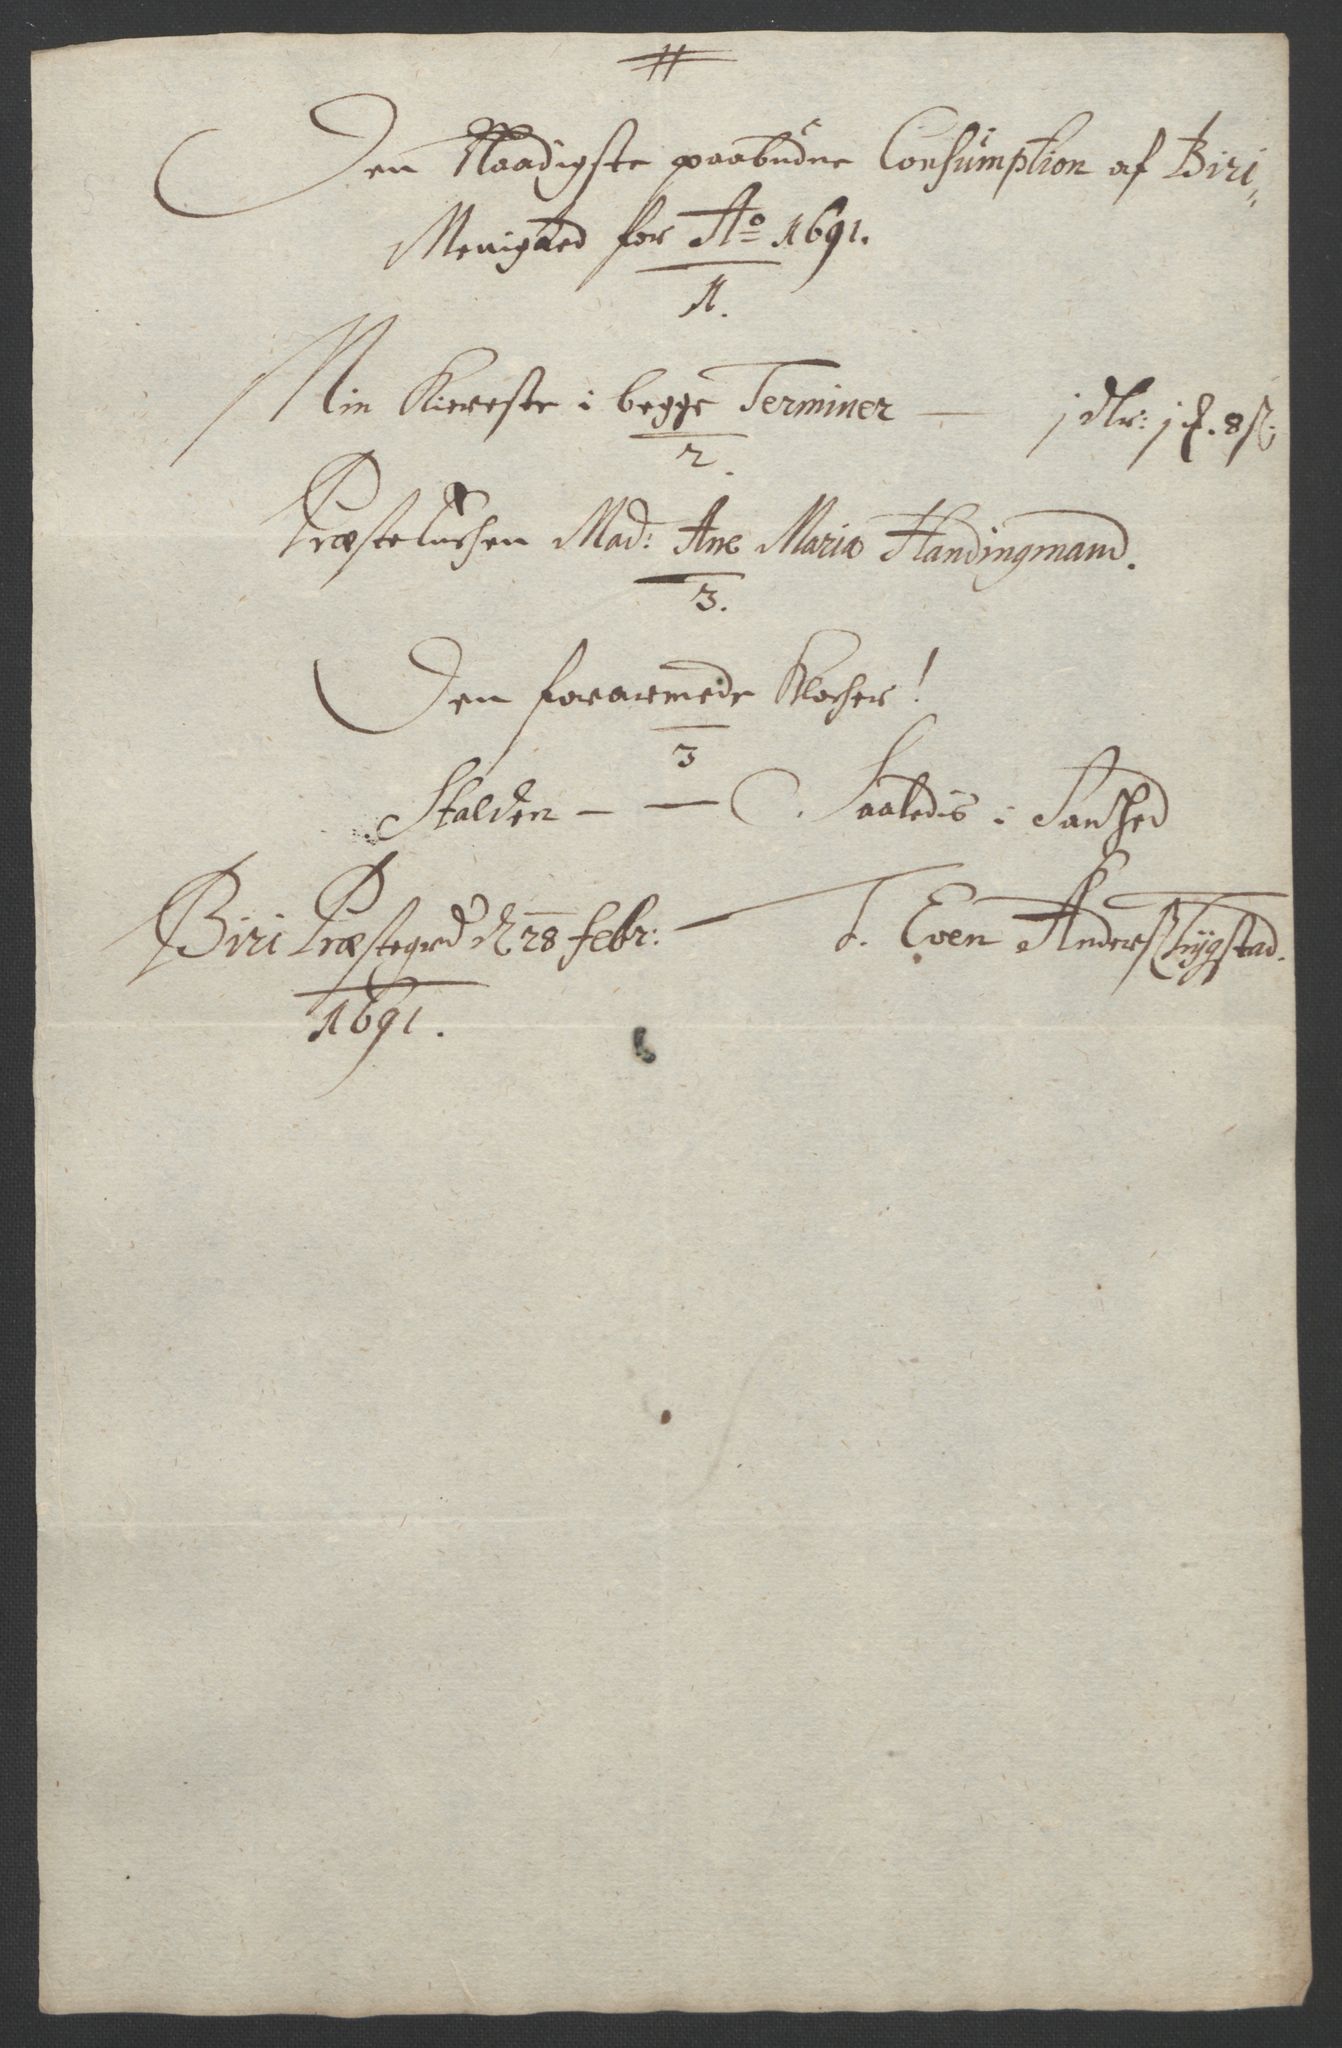 Den Naadigste paabudne Consumption af Biri
Menighed for Ao 1691.
1.
Min Kiereste i begge Terminer — j dlr: j
2.
Præste Mad: Ane Maria Handingmand.
3.
Den forarmede Klocher!
3
Stalden — — Saaledis i Sandhed
Biri Præstegrd d 28 febr: — Even Anders
1691.